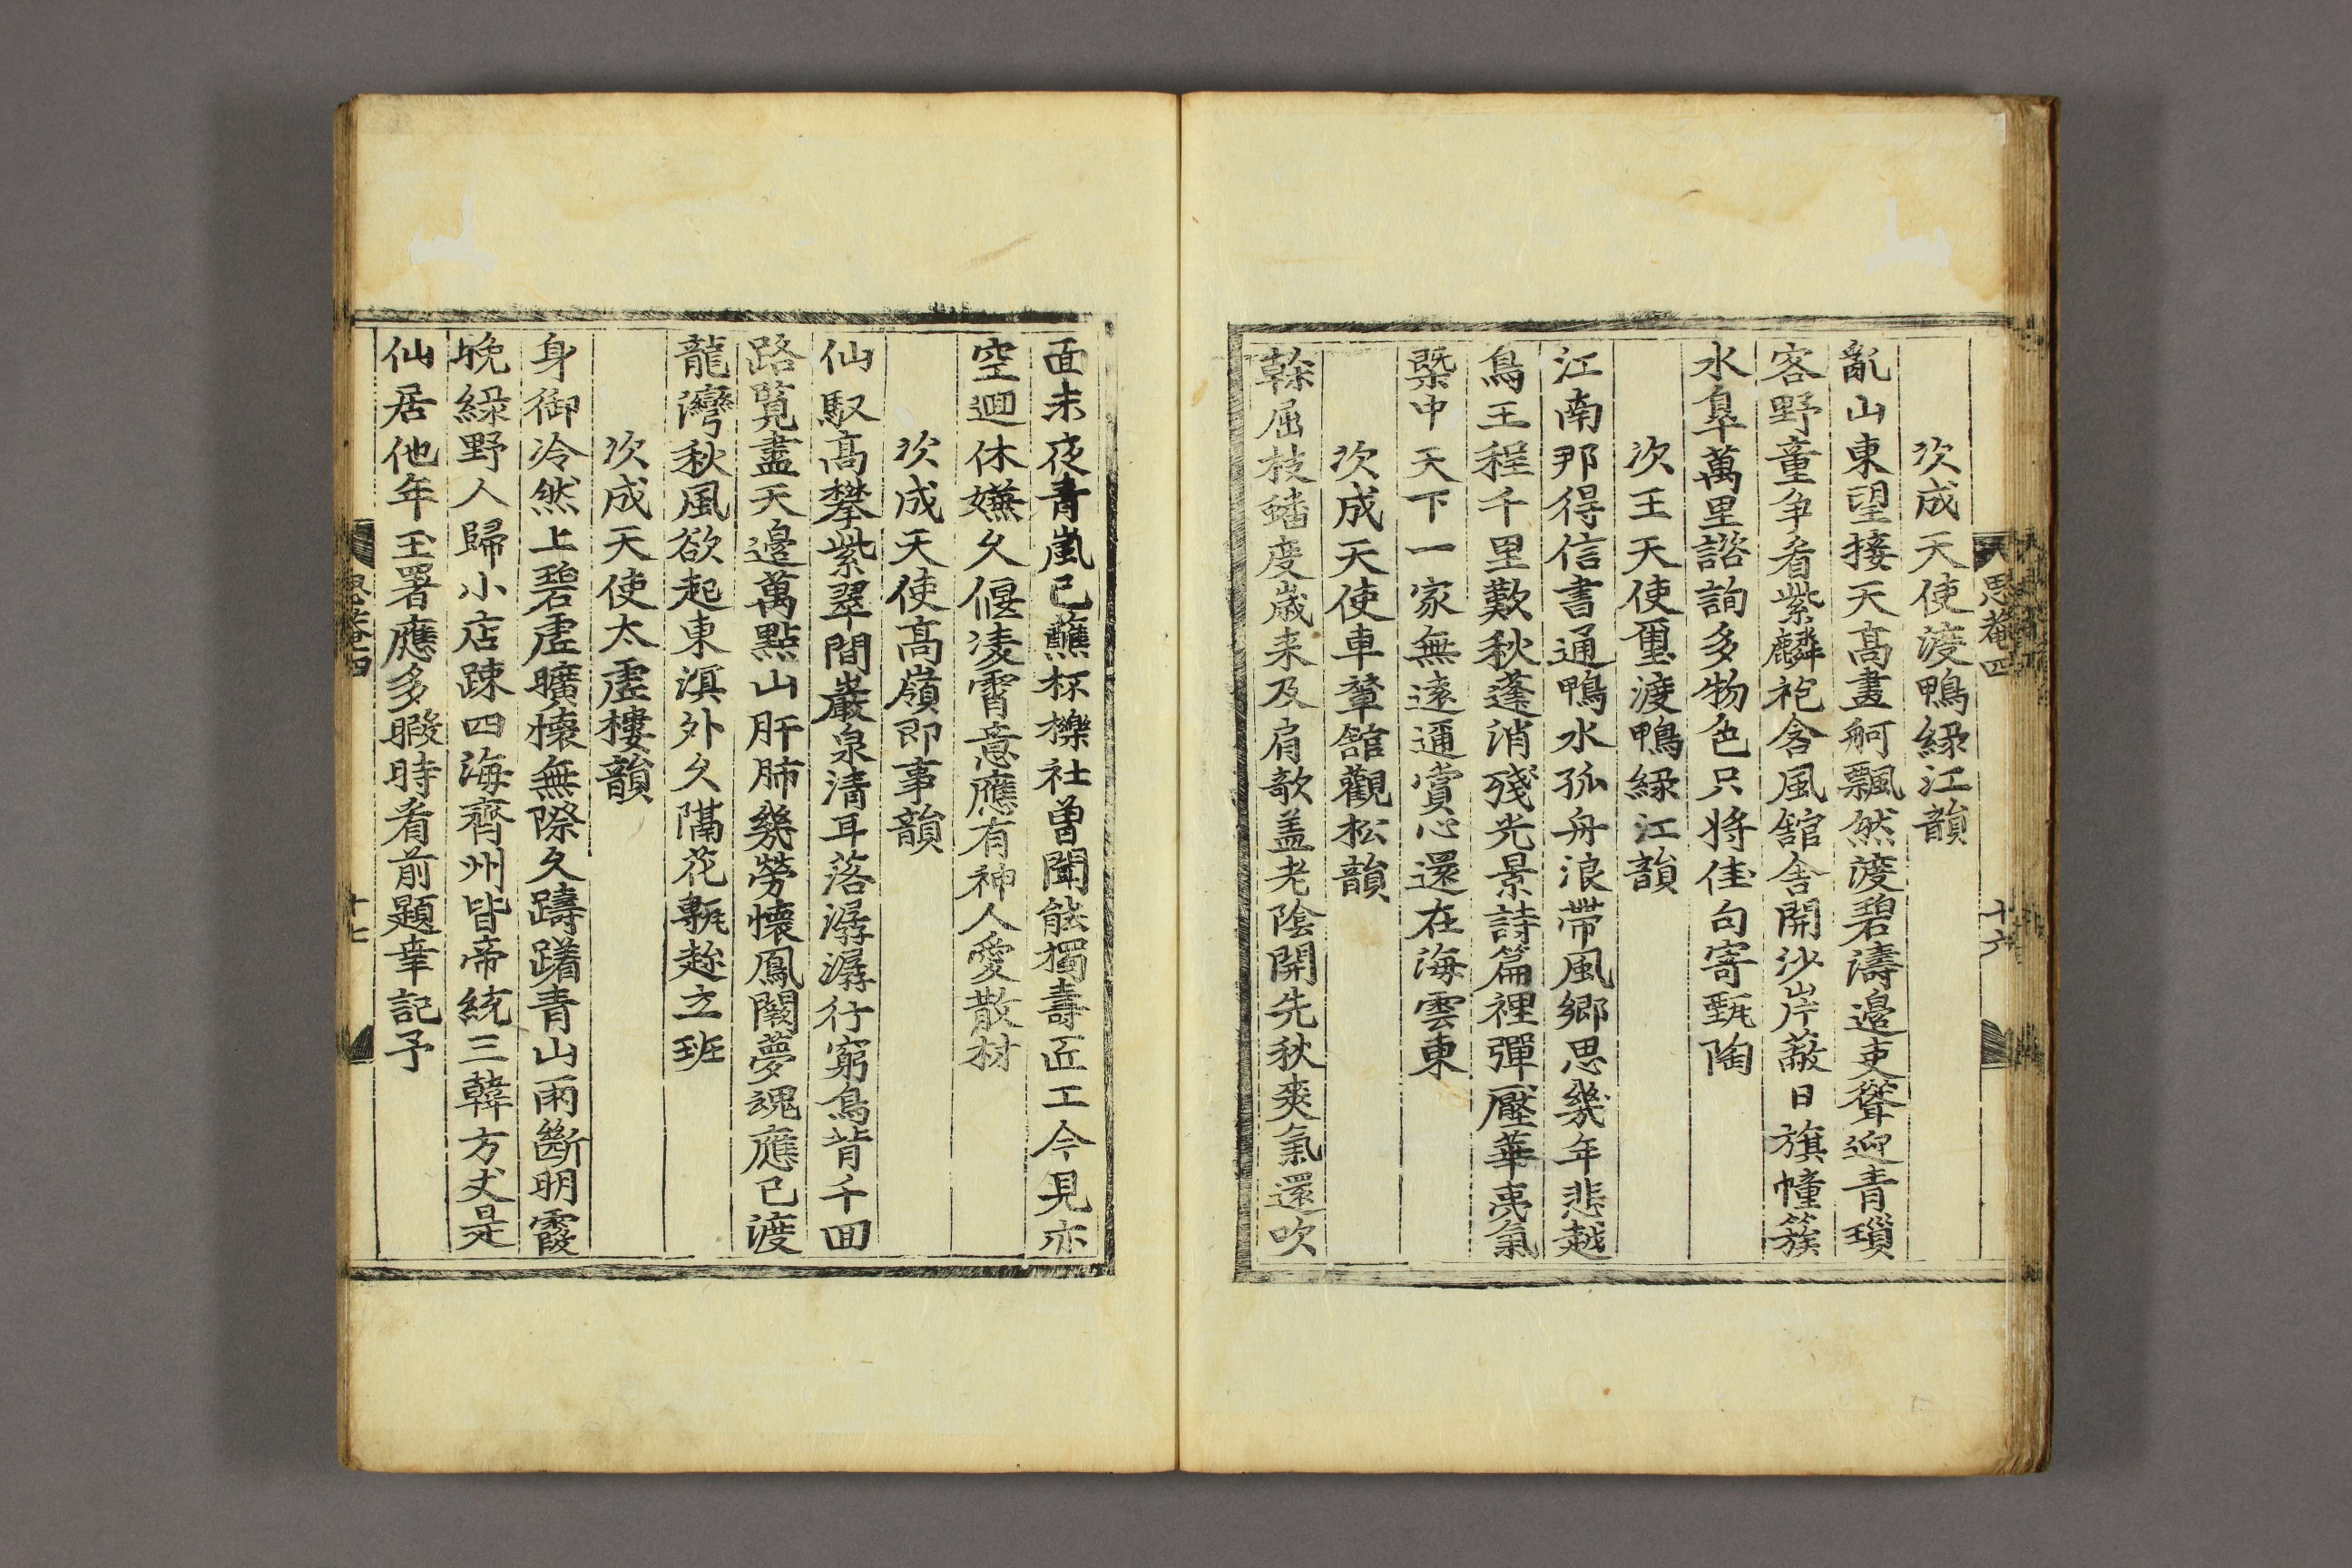 思菴四
十六
次成天使渡鴨緑江韻
亂山東望接天高畫舸飄然渡碧濤邉吏聳迎青瑣
客野童争看紫麟袍含風舘舎開沙岸蔽日旗幢簇
水皐萬里諮詢多物色只將佳句寄甄陶
次王天使璽渡鴨緑江韻
江南那得信書通鴨水孤舟浪帶風鄉思幾年悲越
鳥王程千里歎秋蓬消殘光景詩篇裡彈壓華夷氣
槩中天下一家無遠邇賞心還在海雲東
次成天使車輦舘觀松韻
榦屈枝蟠度歳来及肩欹盖老陰開先秋爽氣還吹
面未夜青嵐已蘸杯櫟社曽聞能獨壽匠工今見亦
空迴休嫌久偃凌霄意應有神人愛散材
次成天使高嶺即事韻
仙馭高攀紫翠間巖泉清耳落潺潺行窮鳥背千回
路覧盡天邉萬點山肝肺幾勞懷鳳闕夢魂應已渡
龍灣秋風欲起東溟外久隔花甎趂立班
次成天使太虛樓韻
身御冷然上碧虛曠懷無際久躊躇青山雨斷明霞
晚緑野人歸小店踈四海齊州皆帝統三韓方丈是
仙居他年玉署應多暇時看前題幸記予
思菴四
十七